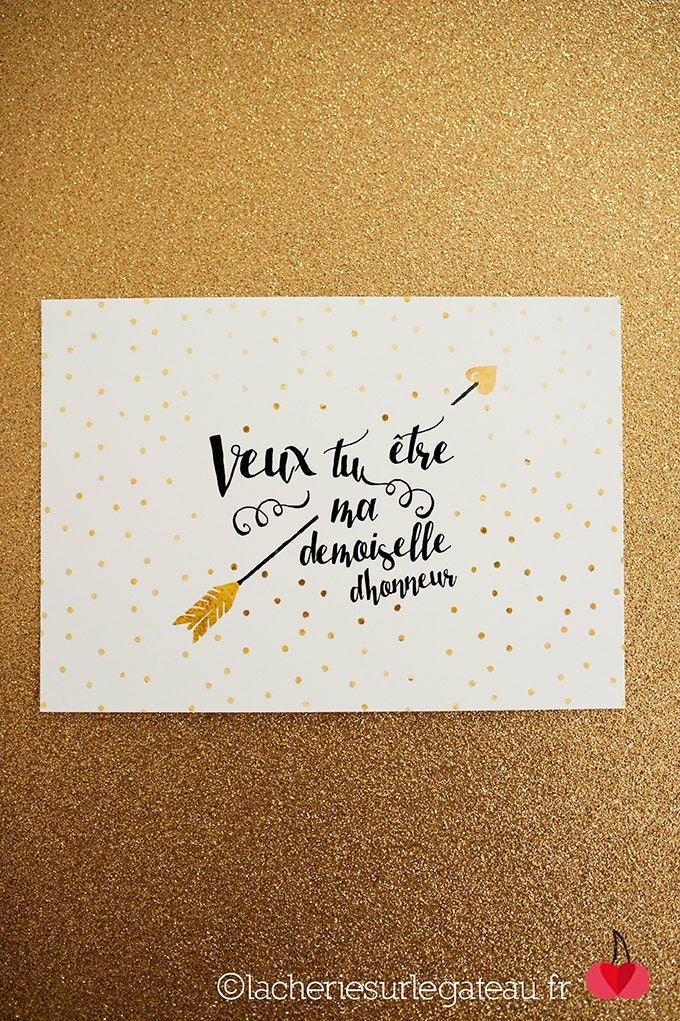 Veux tu être
ma
demoiselle
dhonneur
©lacheriesurlegateau.fr